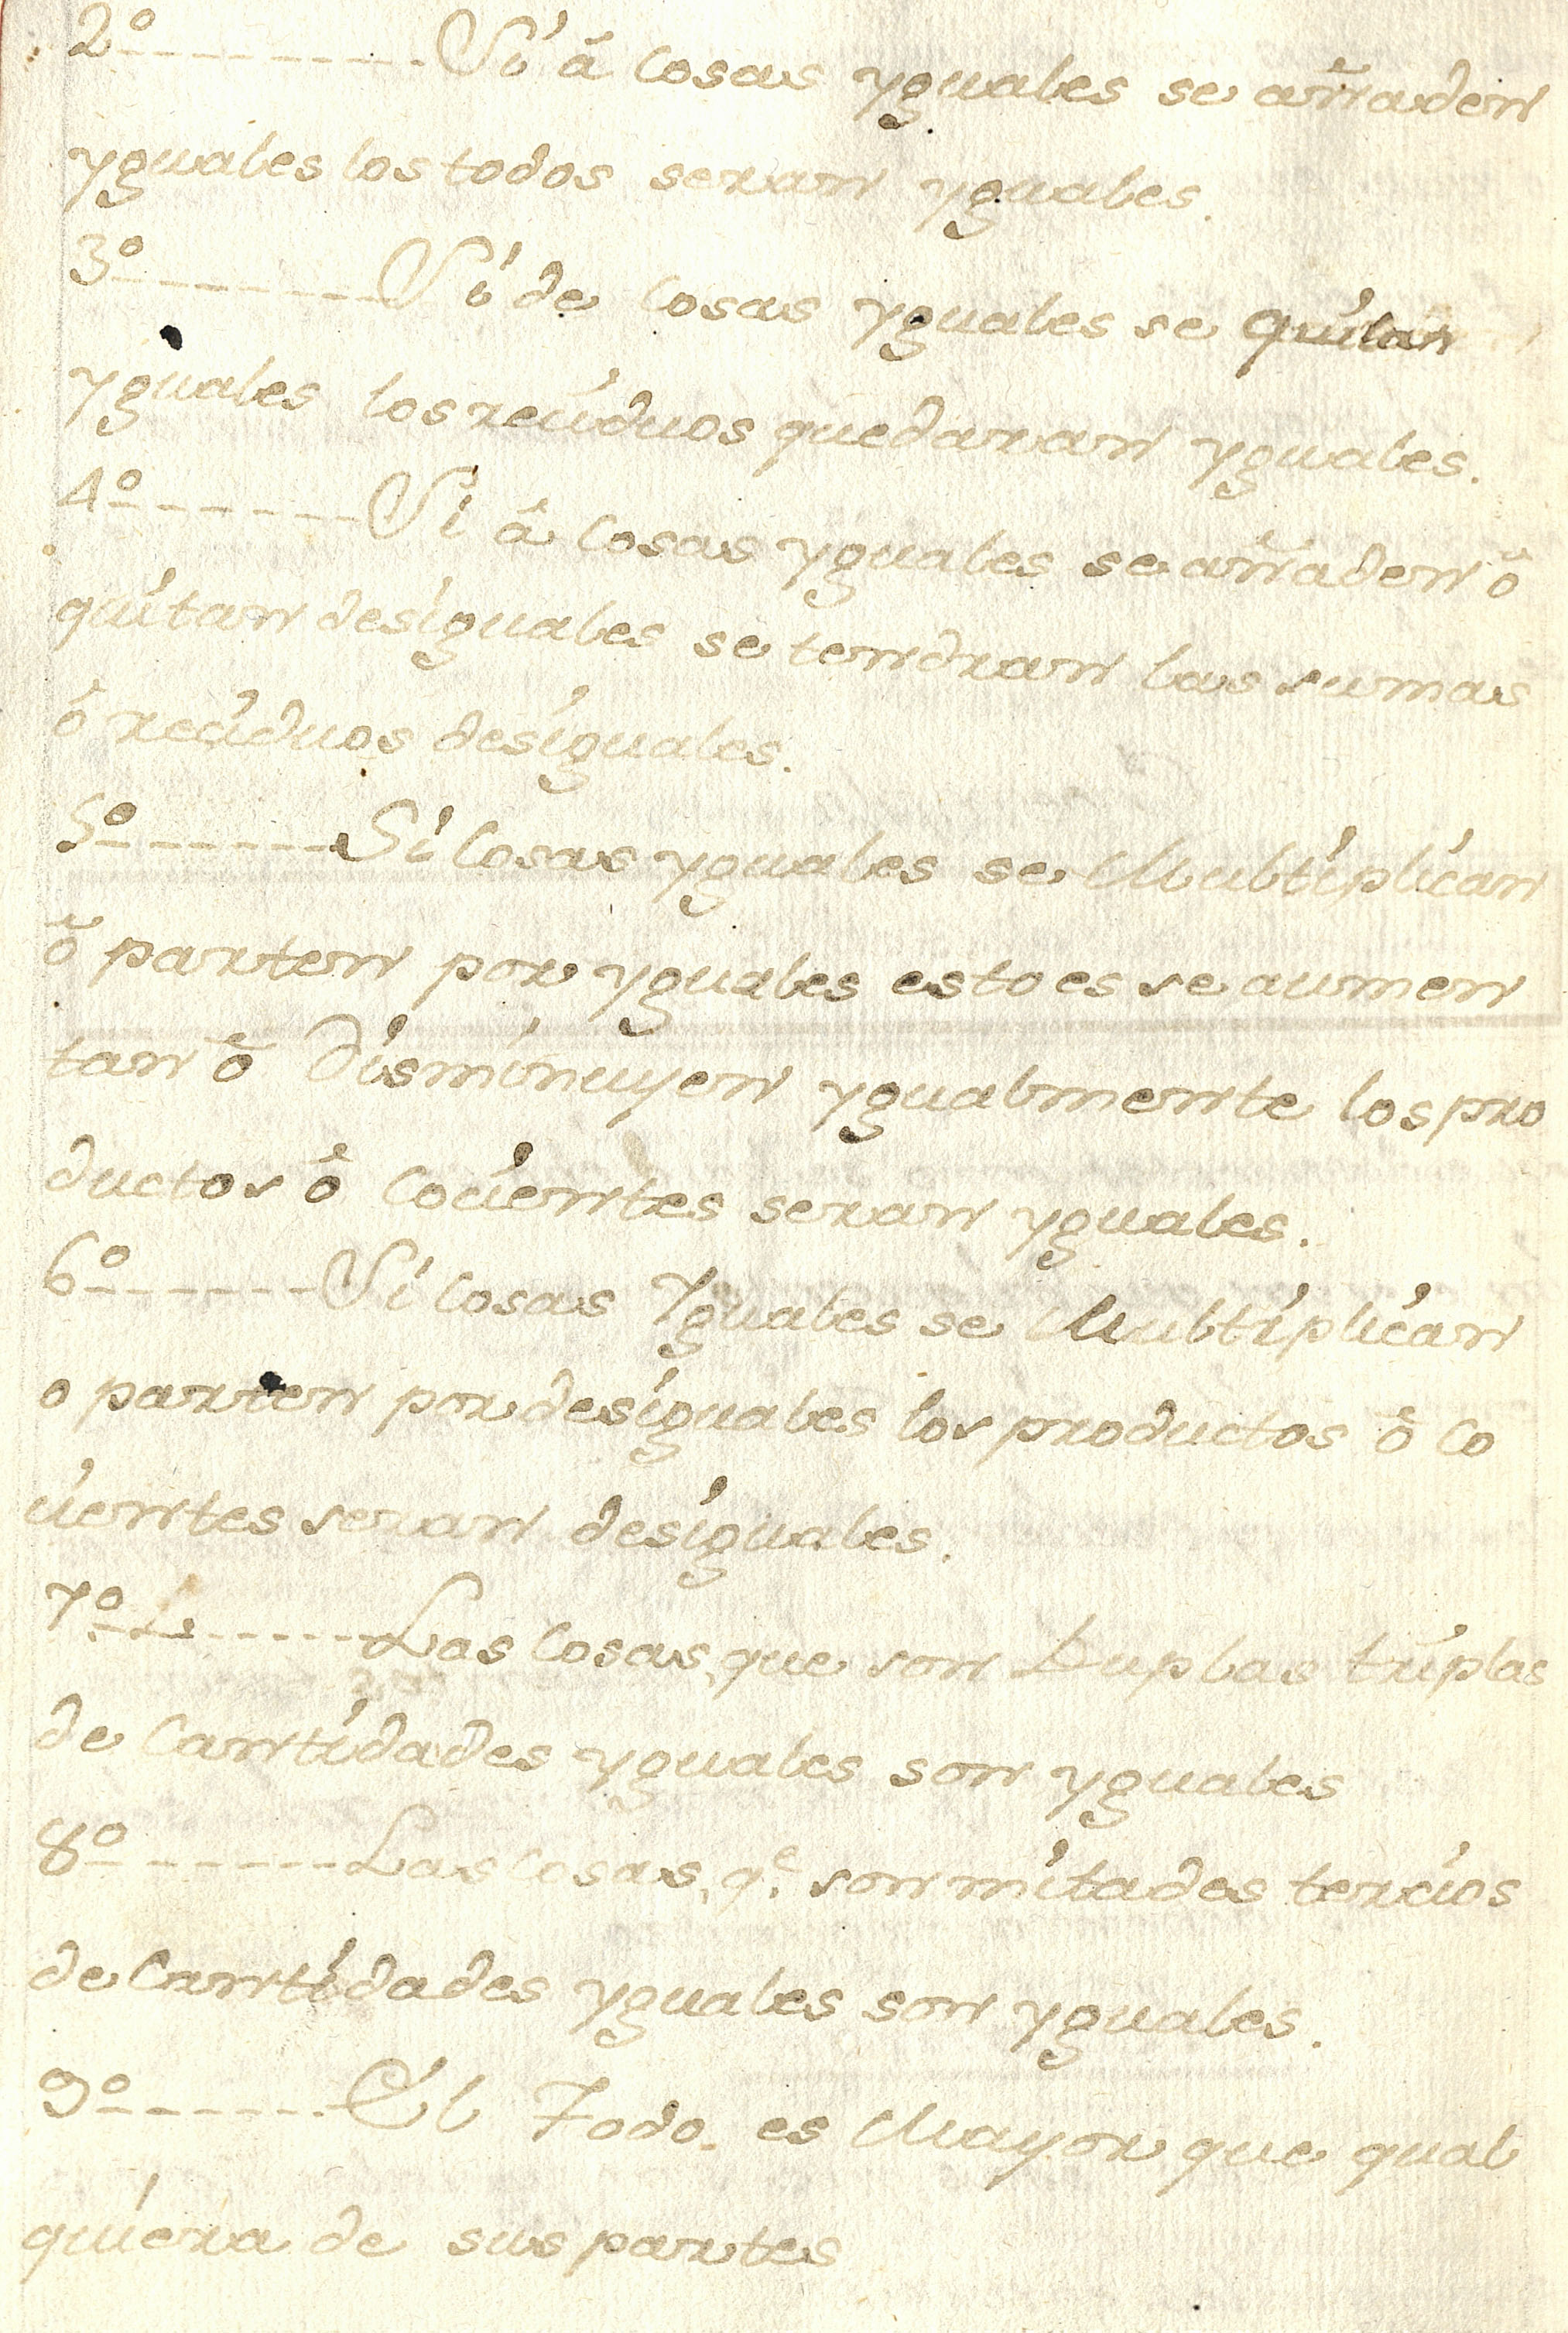 2º --------- Si â cosas yguales se añaden
yguales los todos seran yguales.
3º --------- Si de cosas yguales se quitan
yguales los reciduos quedaran yguales.
4º ------- Si â cosas yguales se añaden ô
quitan desiguales se tendran las sumas
ô reciduos desiguales.
5º ------- Si cosas yguales se Multiplican
ô parten por yguales esto es se aumen
tan ô disminuyen ygualmente los pro
ductos ô cocientes seran yguales.
6º ------- Si cosas Yguales se Multiplican
o parten por desiguales los productos ô co
cientes seran desiguales.
7º ------- Las cosas, que son Duplas triplas
de cantidades yguales son yguales
8º ------- Las cosas, qe. son mitades tercios
de cantidades yguales son yguales.
9º ------- El Todo es Mayor que qual
quiera de sus partes